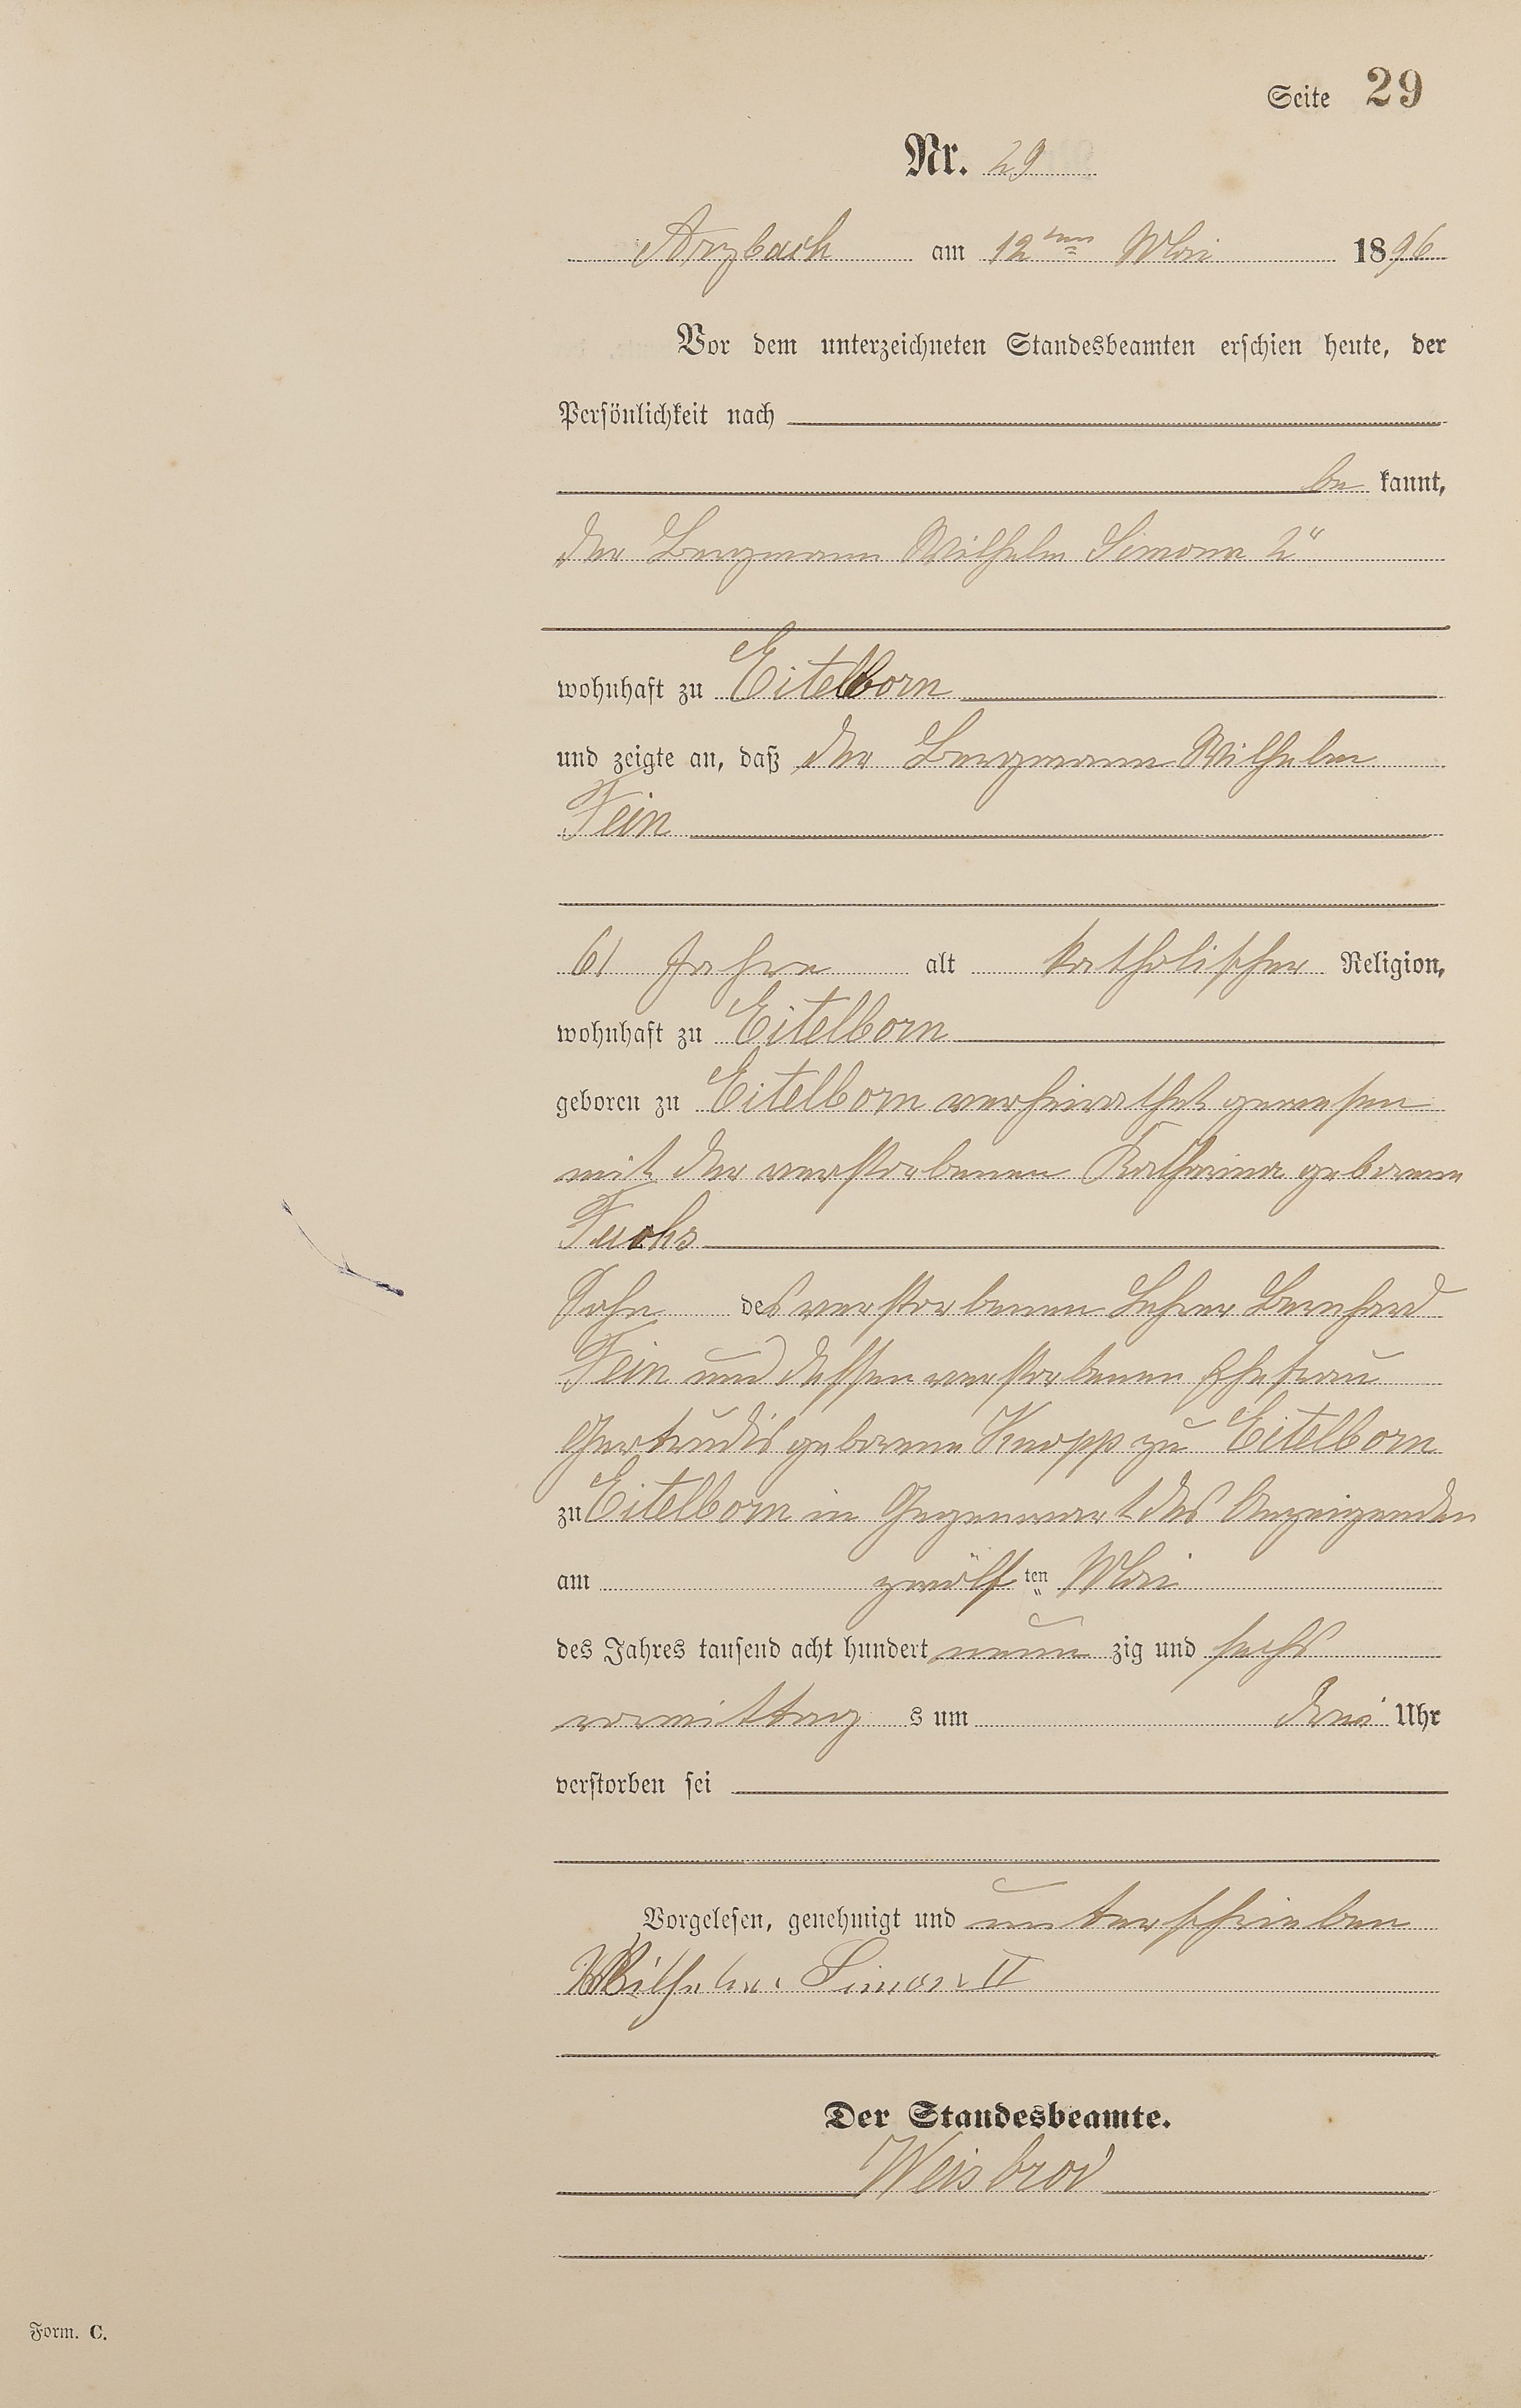 Seite 29
Nr. 29
Arzbach am 12ten Mai 1896
Vor dem unterzeichneten Standesbeamten erschien heute, der
Persönlichkeit nach
be kannt,
der Bergmann Wilhelm Simon 2"
wohnhaft zu Eitelborn
und zeigte an, daß der Bergmann Wilhelm
Fein
61 Jahre alt katholischer Religion,
wohnhaft zu Eitelborn
geboren zu Eitelborn verheirathet gewesen
mit der verstorbenen Katharina geborene
Fuchs
Sohn des verstorbenen Lehrer Bernhard
Fein und dessen verstorbenen Ehefrau
Gertrudis geborene Knopp zu Eitelborn
zu Eitelborn in Gegenwart des Anzeigenden
am zwölf ten Mai
des Jahres tausend acht hundert neun zig und sechs
vormittag s um drei Uhr
verstorben sei
Vorgelesen, genehmigt und unterschrieben
Wilhelm Simon II
Der Standesbeamte.
Weisbrod
Form. C.